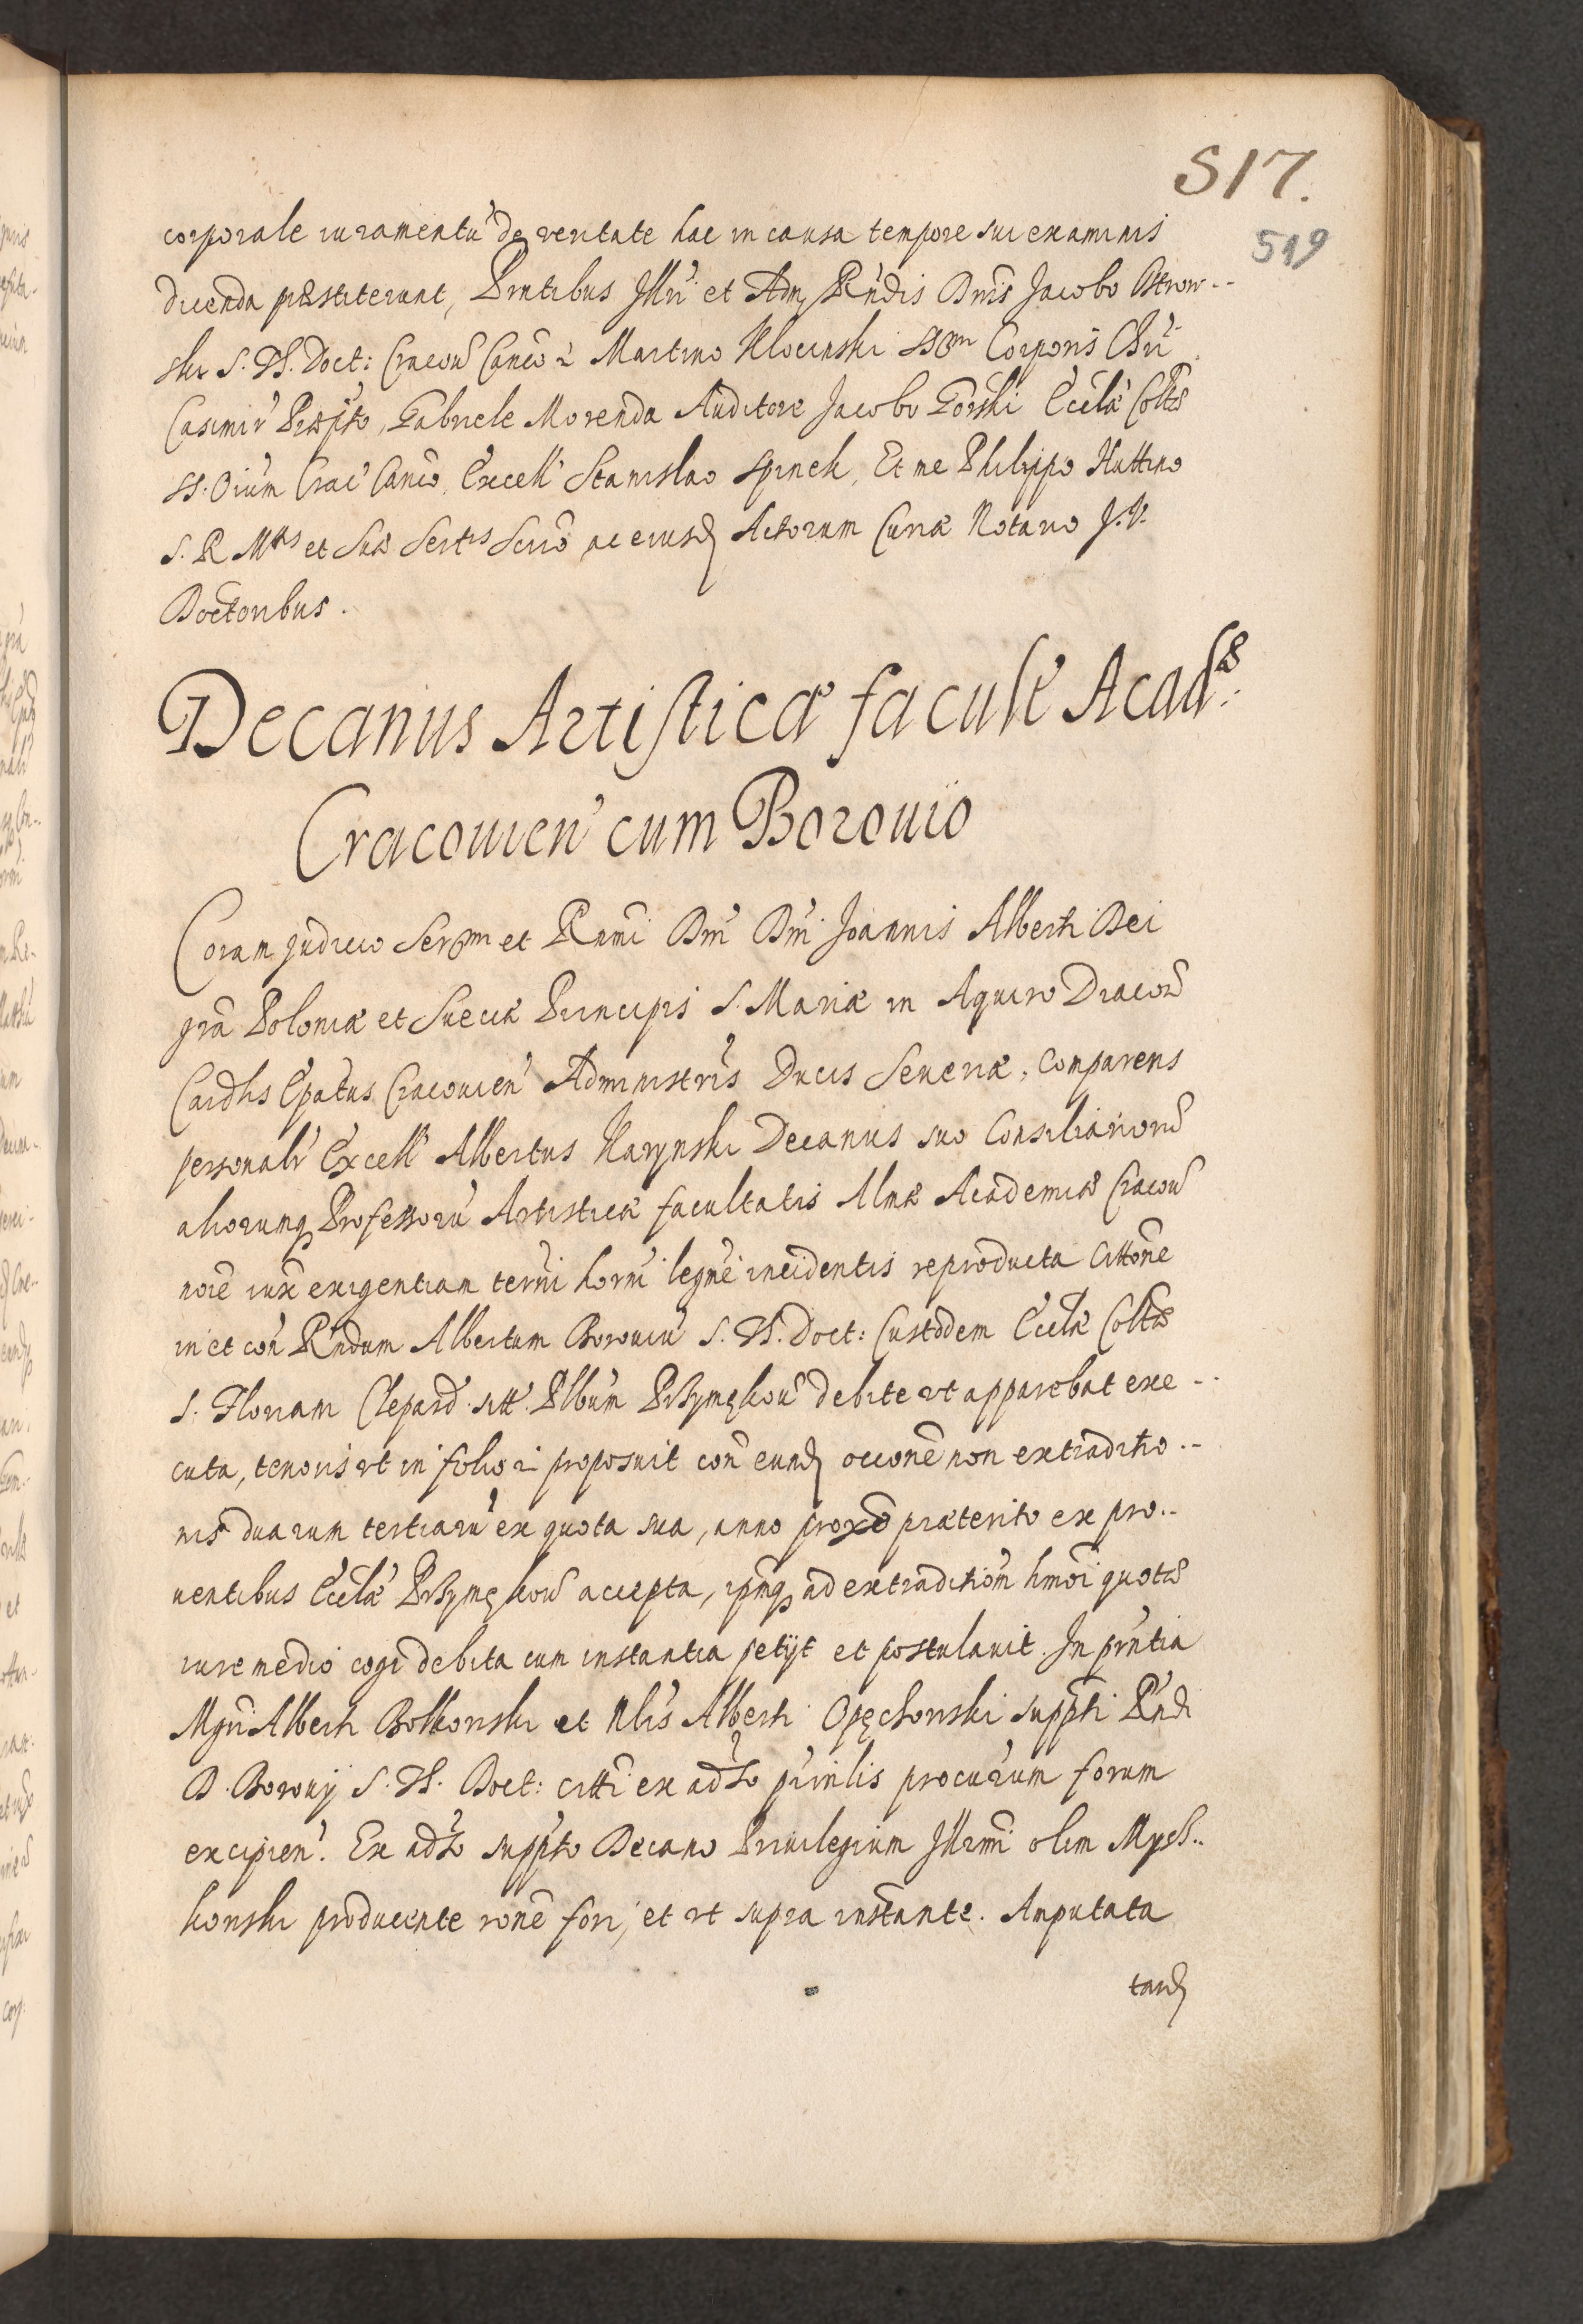 517.
519
corporale iuramentū de veritate hac in causa tempore sui examinis
dicenda præstiterunt, Prntibus Illri et Adm Rndis Dnis Jacobo Ostrow--
ski S. Th. Doct: Cracou Canco Martino Klocinski SSmi Corporis Chri
Casimir Præpto, Gabriele Morenda Auditore Jacobo Gorski Eccla Coltæ
SS. Oium Crac Canco, Excell Stanislao Spinek, Et me Philippo Huttino
S. R. Mtis et Suæ Sertis Scrio ac eiusd Actorum Curiæ Notario J. V.
Doctoribus.
Decanus Artisticæ facult Acad:
Cracouien cum Borouio
Coram Judicio Sermi et Rnmi Dni Dni Joannis Alberti Dei
gra Poloniæ et Sueciæ Principis S. Mariæ in Aquiro Diacon
Cardlis Epatus Cracouien Administris Ducis Seueriæ, Comparens
personalr Excell Albertus Karynski Decanus suo Consiliarioru
aliorumq Professorū Artisticæ facultatis Almæ Academiæ Cracou
noie iux exigentiam terni horni legme incidentis reproducta Cittone
in et con Rndum Albertum Borouiu S. Th. Doct: Custodem Eccla Coltæ
S. Floriani Clepard sitt. Plbum debite vt apparebat exe--
cuta, tenoris vt in folio proposuit con eund occone non extraditio--
nis duarum tertiarū ex quota sua, anno proxo præterito ex pro--
uentibus Eccla accepta, ipmq ad extraditiom hmoi quotæ
iure medio cogi debita cum instantia petijt et postulauit. In prntia
Mgri Alberti Bolkonski et Nlis Alberti Opęchowski suppti Rndi
D. Borouij S. Th. Doct: citti ex adso priuilis procurum forum
excipien. Ex adso suppto Decano Priuilegium Illrmi olim Mysz--
kowski producente rone fori, et vt supra instante. Amputata
tand